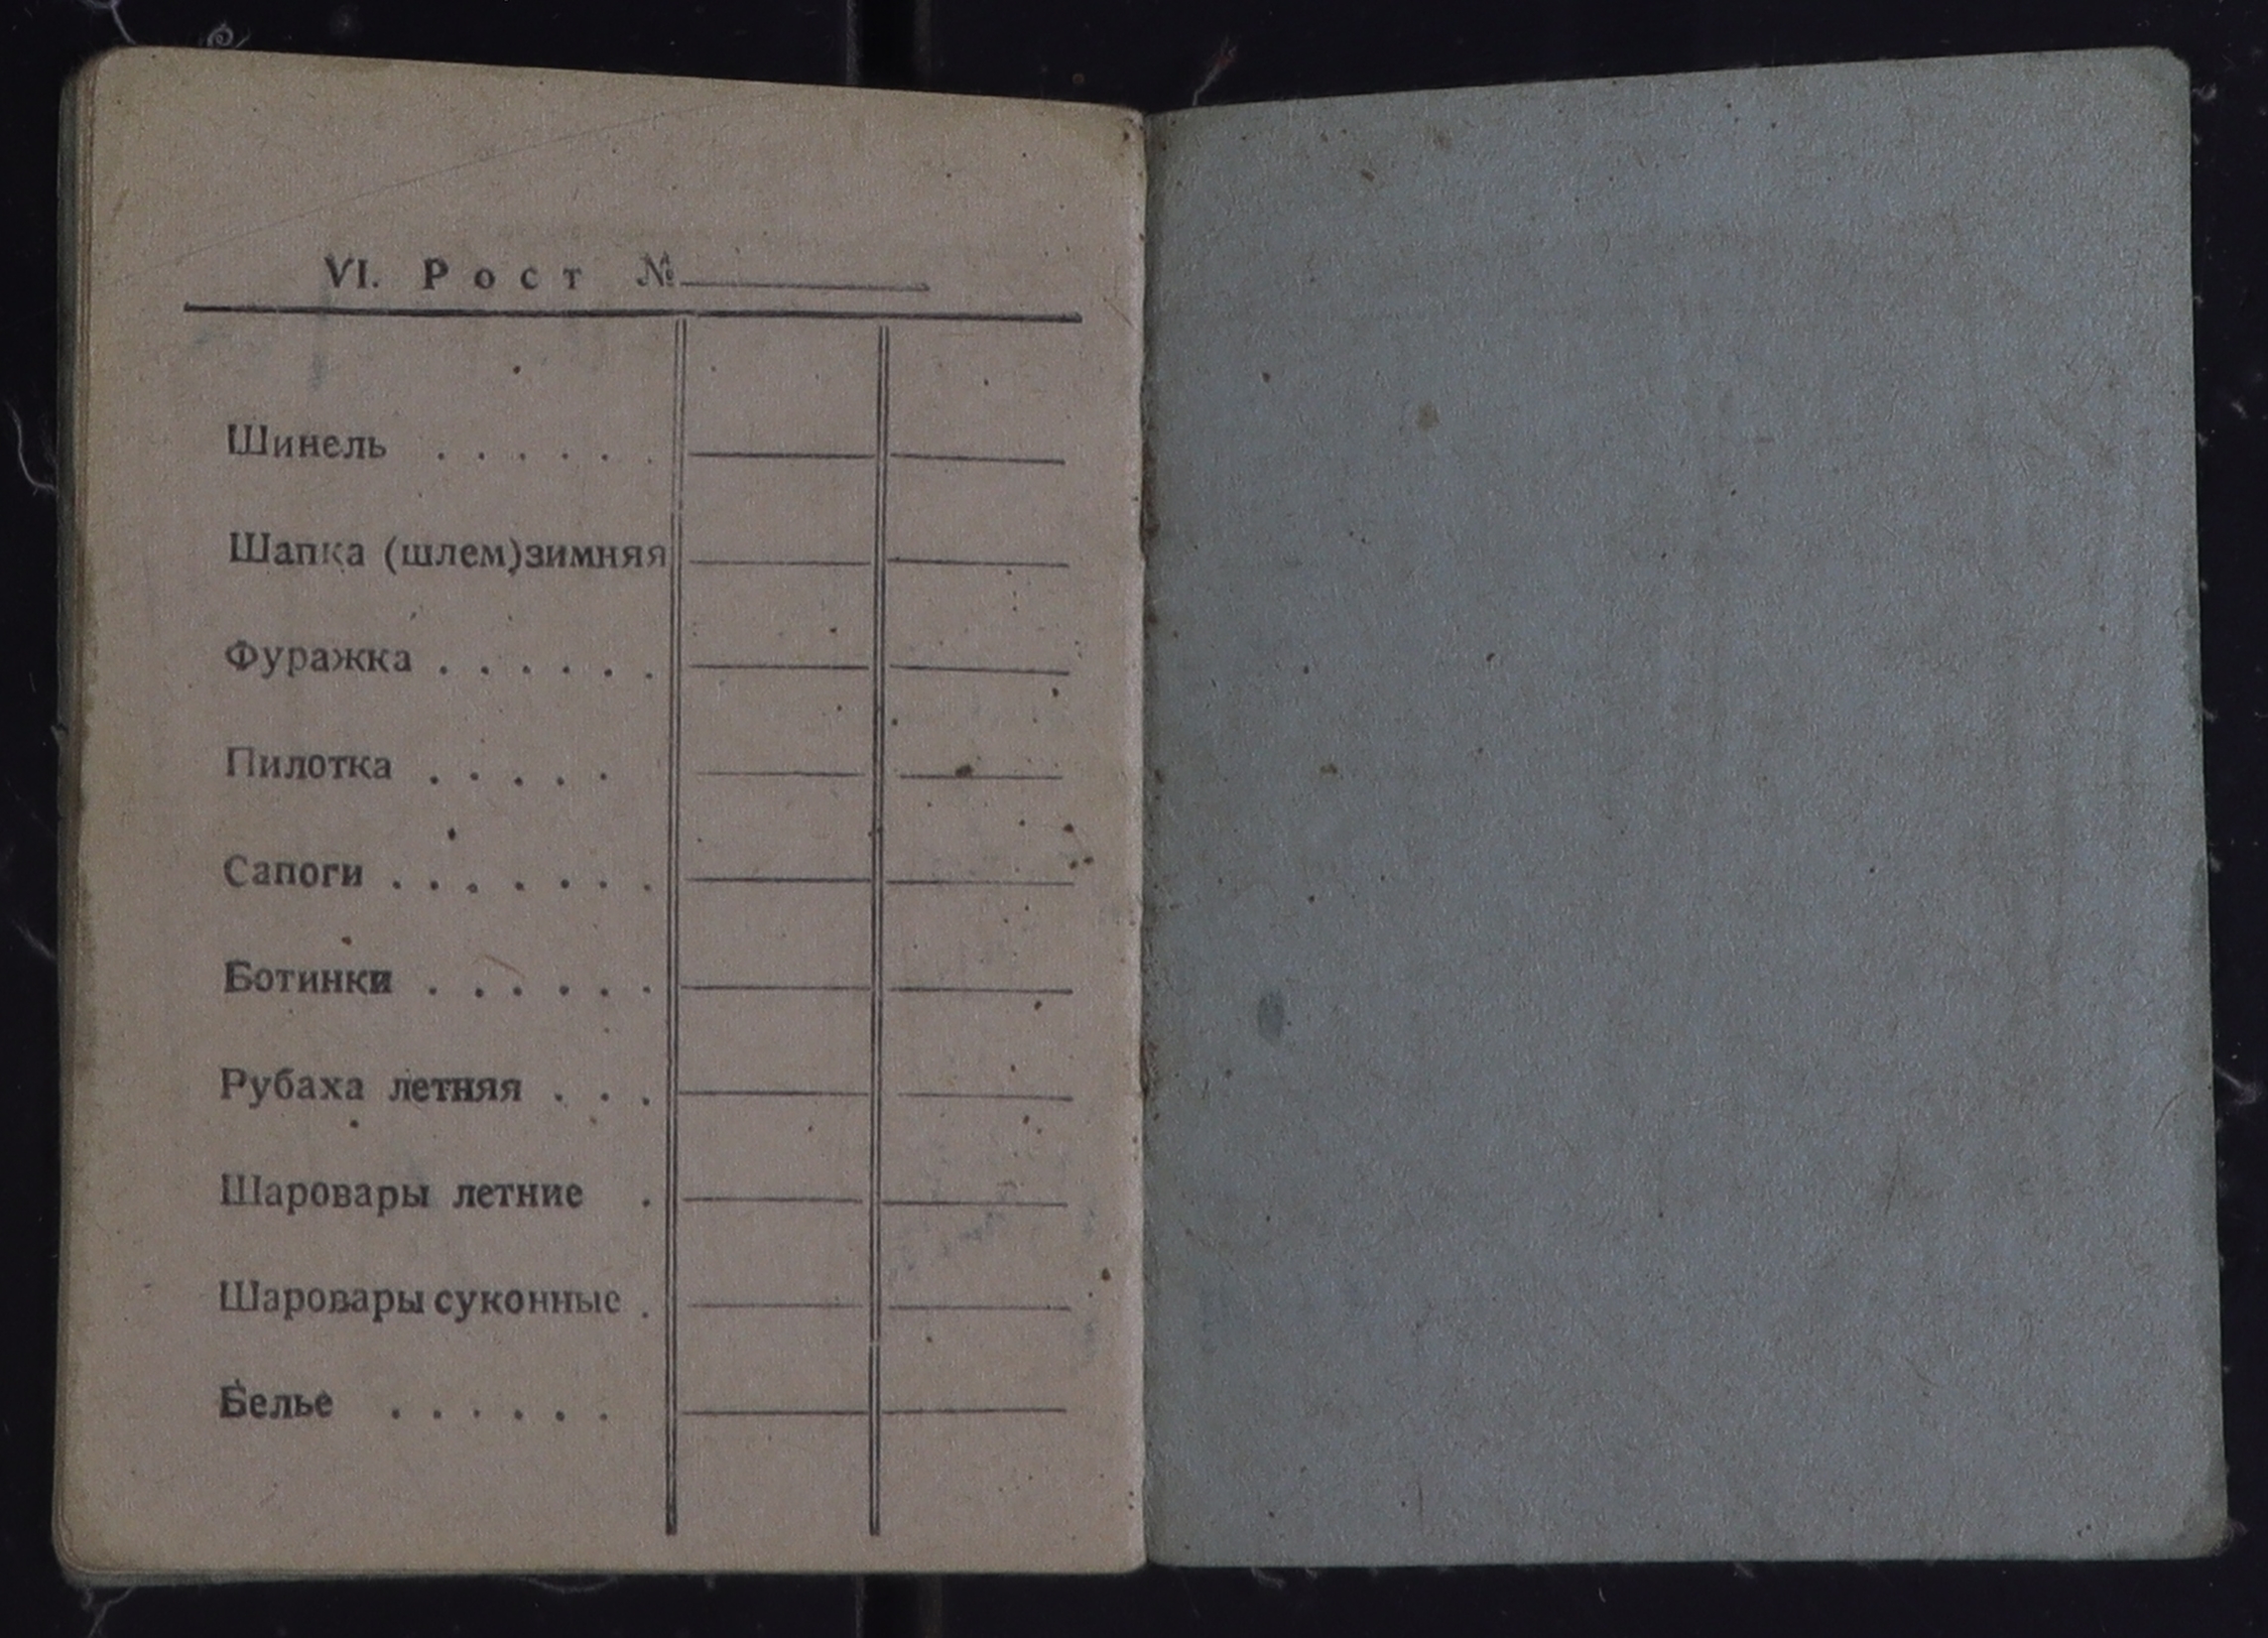 VI. Рост №
Шинель . . . . . .
Шапка (шлем)зимняя
Фуражка . . . . . .
Пилотка . . . . .
Сапоги . . . . . . .
Ботинки . . . . . .
Рубаха летняя . . .
Шаровары летние .
Шаровары суконные .
Белье . . . . . .